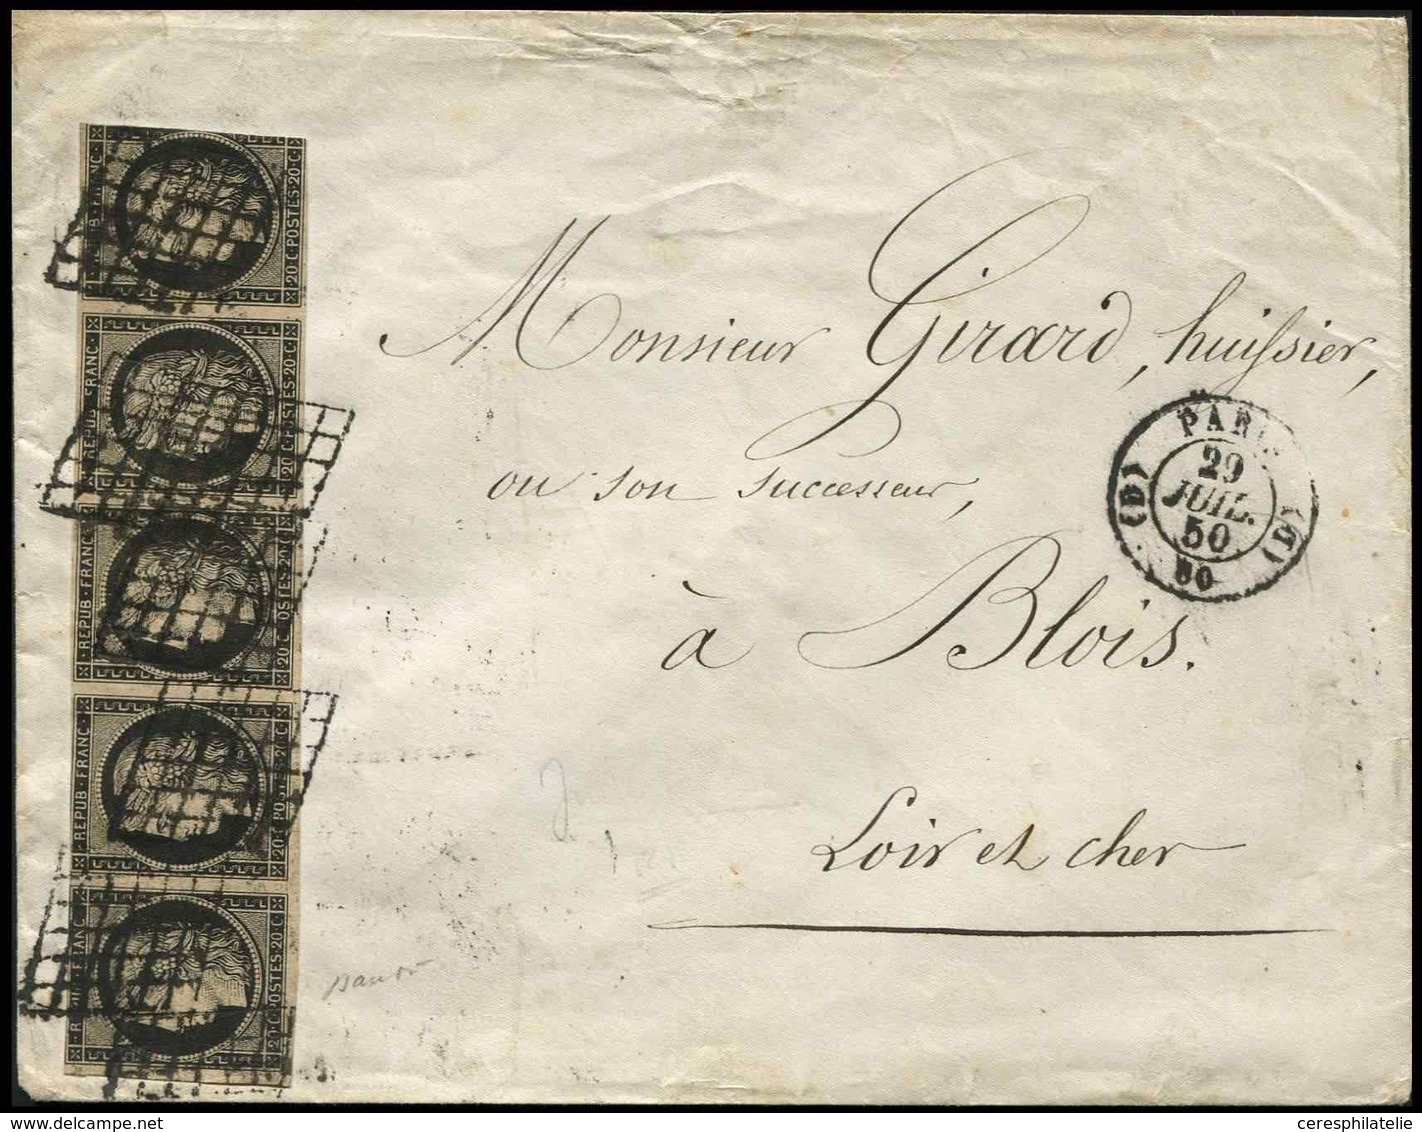 Monsieur Girard, huissier,
ou son successeur,
à Blois.
Loir et cher
PARIS
29
JUIL.
50
(D)
(D)
20·C·POSTES·20·C
20·C·POSTES·20·C·
REPUB·FRANC·
20·C·POSTES·20·C
REPUB·FRANC·
20·C·POSTES·20·C
·REPUB·FRANC·
20·C·POSTES·20·C
ceresphilatelie